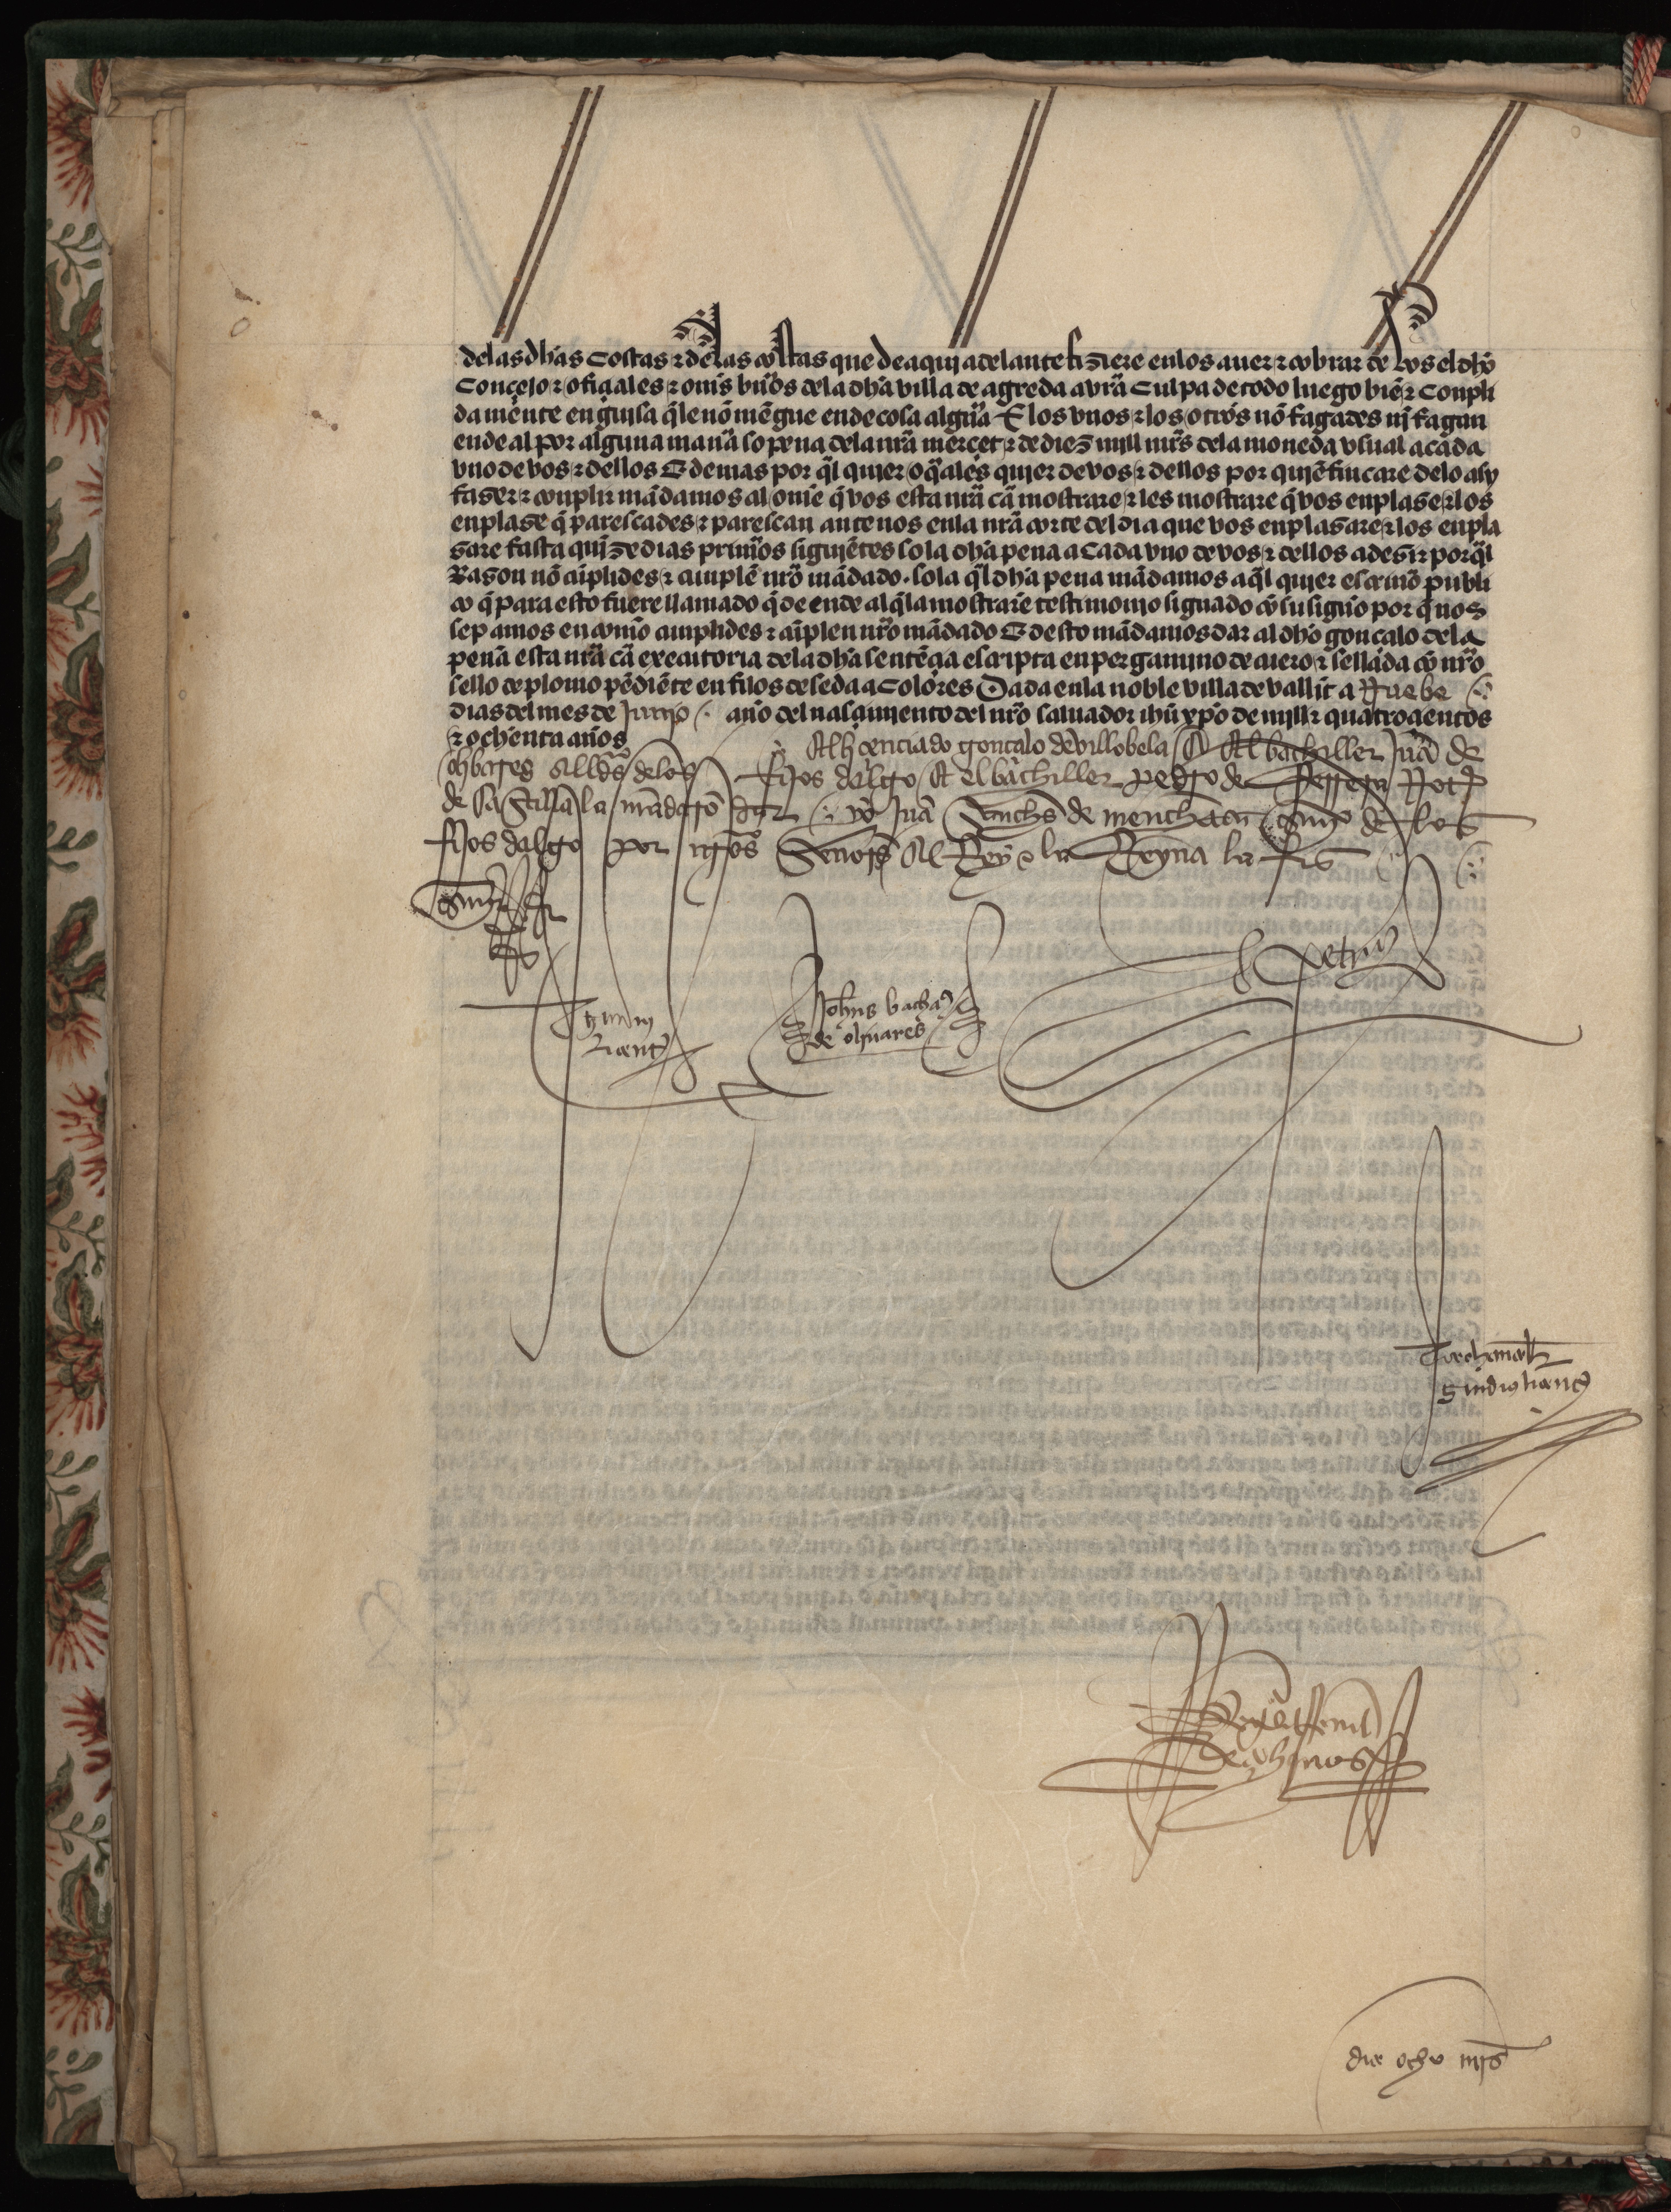 delas dhas costas ⁊ delas costas que de aqui adelante fiziere en los auer ⁊ cobrar de vos el dho
Conçejo ⁊ ofiçiales ⁊ oms buos dela dha villa de agreda avra Culpa de todo luego bie ⁊ Conpli
da mente en guisa q̃ le no mẽgue ende cosa algũa E los vnos ⁊ los otros nõ fagades nj̃ fagan
ende al por alguna manã so pena dela nrã merçet ⁊ de diez mjll mrs̃ dela moneda vsual a cada
vno de vos ⁊ dellos E demas por q̃l quier o q̃ales quier de vos ⁊ dellos por quiẽ fincare delo asy
faser ⁊ conplir mãdamos al ome q̃ vos esta nrã cã mostrare ⁊ les mostrare q̃ vos enplase ⁊ los
enplase q̃ parescades ⁊ parescan ante nos enla nrã corte del dia que vos enplasare ⁊ los enpla
sare fasta qujnze dias primos siguiẽtes sola dha pena a Cada vno de vos ⁊ dellos a desir por q̃l
Rason nõ cũplides ⁊ cunplẽ nrõ mãdado . sola q̃l dha pena mãdamos a q̃l quier escriuõ publi
co q̃ para esto fuere llamado q̃ de ende al q̃ la mostrare testimonio signado cõ su signo por q̃ nos
sepamos en como cunplides ⁊ cũplen nrõ mãdado E desto mãdamos dar al dho gonçalo dela
peña esta nrã cã executoria dela dha sentẽçia escripta en pergamino de cuero ⁊ sellada cõ nrõ
sello de plomo pẽdiẽte en filos de seda a Colores Dada enla noble villa de vallit a Nuebe
dias del mes de Junjo año del nasçimiento del nrõ saluador ihũ xpõ de mjll ⁊ quatroçientos
⁊ ochenta años
El liçenciado gonçalo de villobela El bachiller Juã de
olibares allds̃ delos fijos dalgo El el bachiller pedro de Not
de Castilla la mãdarõ dar yo Juã Sanchs̃ de menchaca escriuo de los
fijos dalgo por nrõs Señors̃ El Rey e la Reyna la fis
petrus
Johns bacha
de oliuares
diez ocho mrs̃